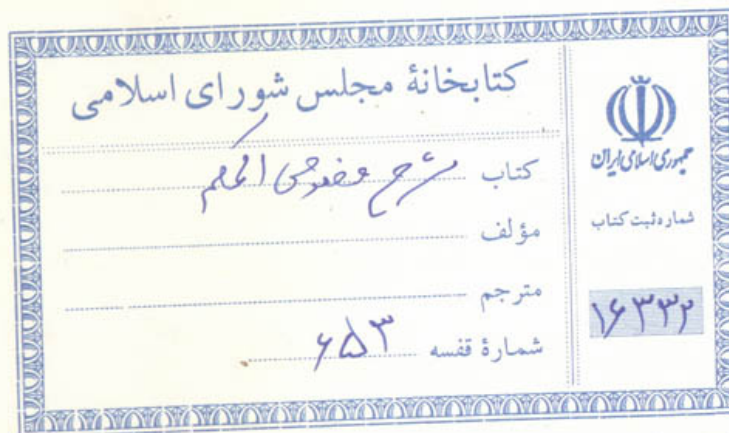 کتابخانهٔ مجلس شورای اسلامی
کتاب شرح فصوص الحکم
مؤلف
مترجم
شمارهٔ قفسه ۶۵۳
جمهوری اسلامی ایران
شماره ثبت کتاب
۱۶۳۳۲